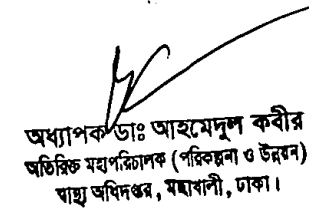 অধ্যাপক ডাঃ আহমেদুল কবীর
অতিরিক্ত মহাপরিচালক (পরিকল্পনা ও উন্নয়ন)
স্বাস্থ্য অধিদপ্তর, মহাখালী, ঢাকা।